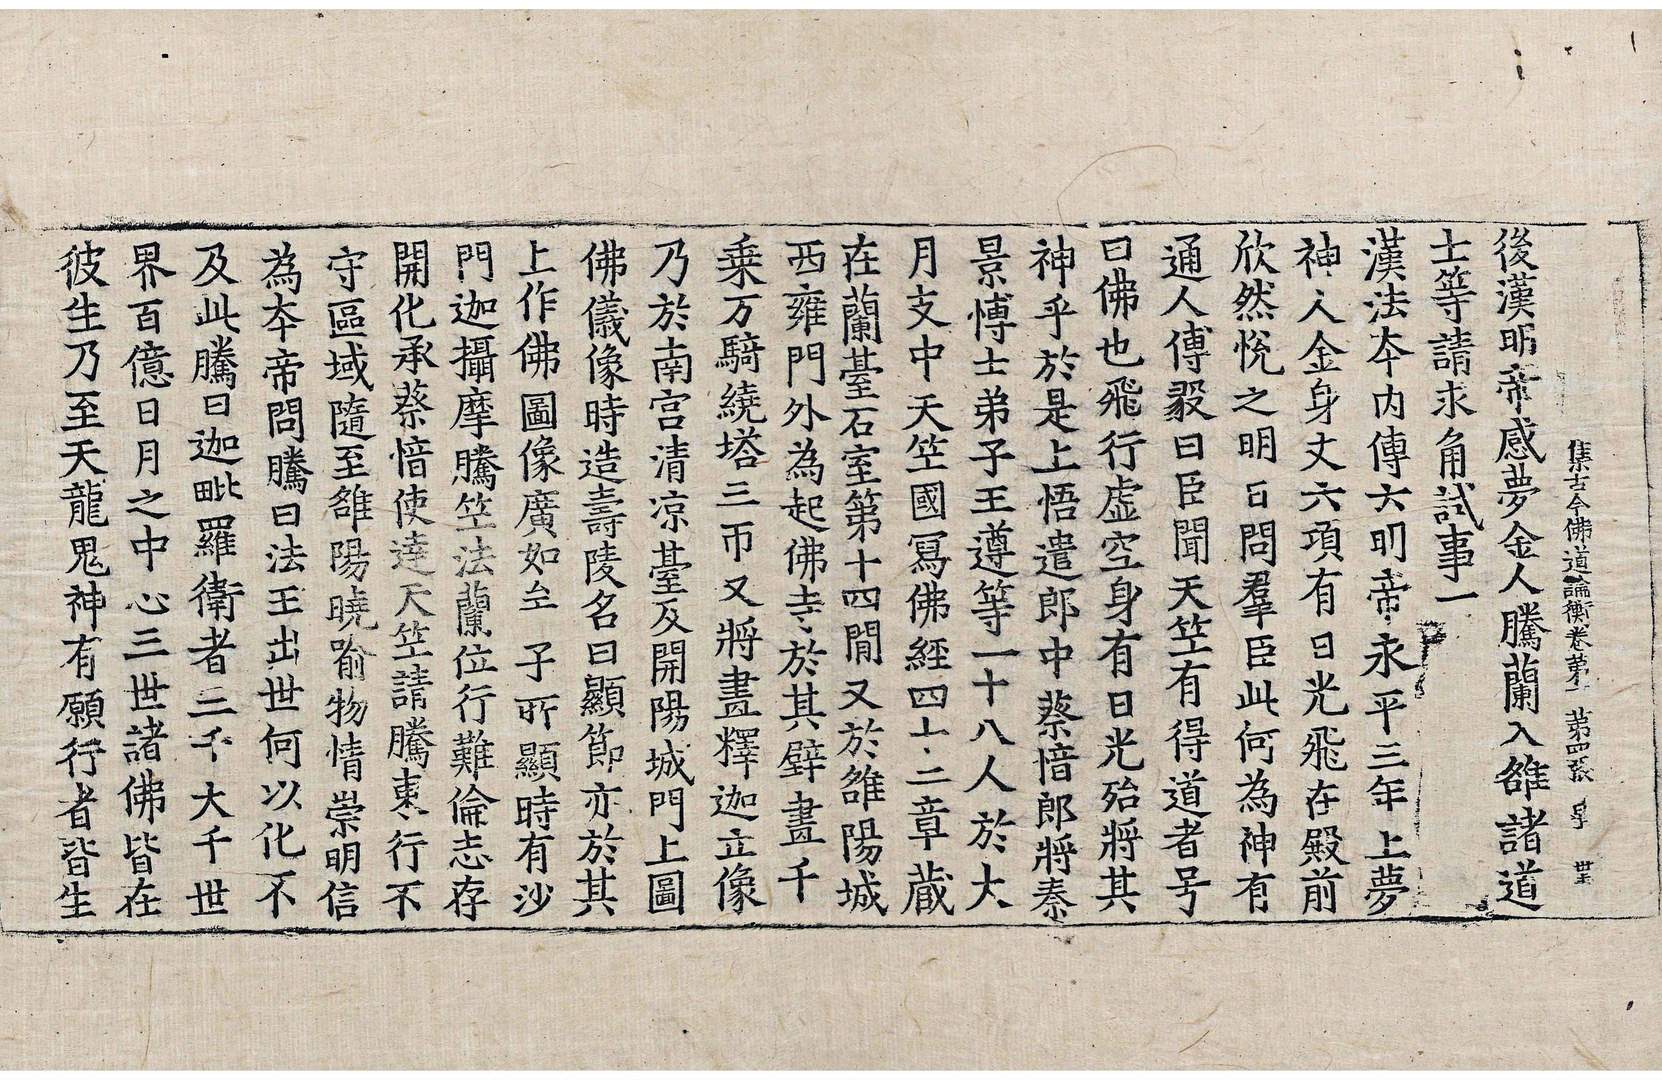 集古今佛道論衡卷第一 第四張 㝊
後漢明帝感夢金人騰蘭入雒諸道
士等請求角試事一
漢法本内傳六明帝永平三年上夢
神人金身丈六項有日光飛在殿前
欣然悅之明日問羣臣此何為神有
通人傅毅曰臣聞天竺有得道者号
曰佛也飛行虛空身有日光殆將其
神乎於是上悟遣郎中蔡愔郎將秦
景博士弟子王遵等一十八人於大
月支中天竺國寫佛經四十二章藏
在蘭臺石室第十四閒又於雒陽城
西雍門外為起佛寺於其壁畫千
乗万騎繞塔三帀又將畫釋迦立像
乃於南宮清凉臺及開陽城門上圖
佛儀像時造壽陵名曰顯節亦於其
上作佛圖像廣如牟子所顯時有沙
門迦攝摩騰竺法蘭位行難倫志存
開化承蔡愔使達天竺請騰東行不
守區域隨至雒陽曉喻物情崇明信
為本帝問騰曰法王出世何以化不
及此騰曰迦毗羅衛者三千大千世
界百億日月之中心三世諸佛皆在
彼生乃至天龍鬼神有願行者皆生